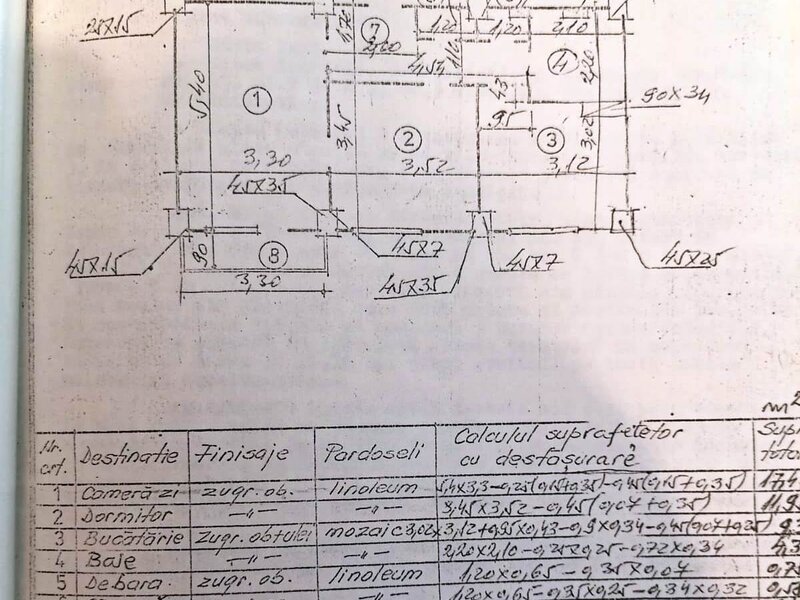 25x15
7
2,60
1,20
1,20
2,10
4
2,20
4,54
43
90x34
5,40
1
3,45
2
95
3
3,02
3,30
3,52
3,12
45x35
45x15
90
8
45x7
45x7
45x25
3,30
45x35
m2
Nr. crt. Destinatie Finisaje Pardoseli Calculul suprafetelor cu desfășurare
1 Cameră zi zugr. ob. linoleum 5,4x3,3-0,25(0,15+0,35)-0,45(0,15+0,35) 17,4
2 Dormitor -"- -"- 3,45x3,52-0,45(0,07+0,35) 11,9
3 Bucătărie zugr. ob+ulei mozaic 3,02x3,12+0,95x0,43-0,9x0,34-0,45(0,07+0,25)
4 Baie -"- -"- 2,20x2,10-0,25x0,25-0,72x0,34
5 Debara zugr. ob. linoleum 1,20x0,65-0,35x0,07
-"- 1,20x0,65-0,35x0,25-0,34x0,32